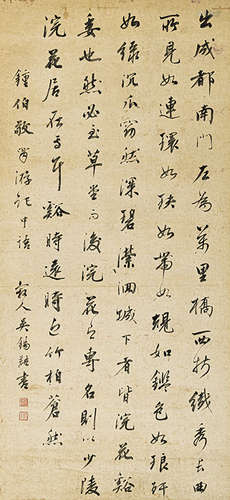 出成都南門左為萬里橋西折纖秀長曲
所見如連環如玦如帶如規如鑑色如琅玕
如綠沉瓜窈然深碧瀠洄城下者皆浣花谿
委也然必至草堂而後浣花有專名則以少陵
浣花居在焉耳谿時遠時近竹柏蒼然
鍾伯敬蜀游記中語
穀人吳錫麒書